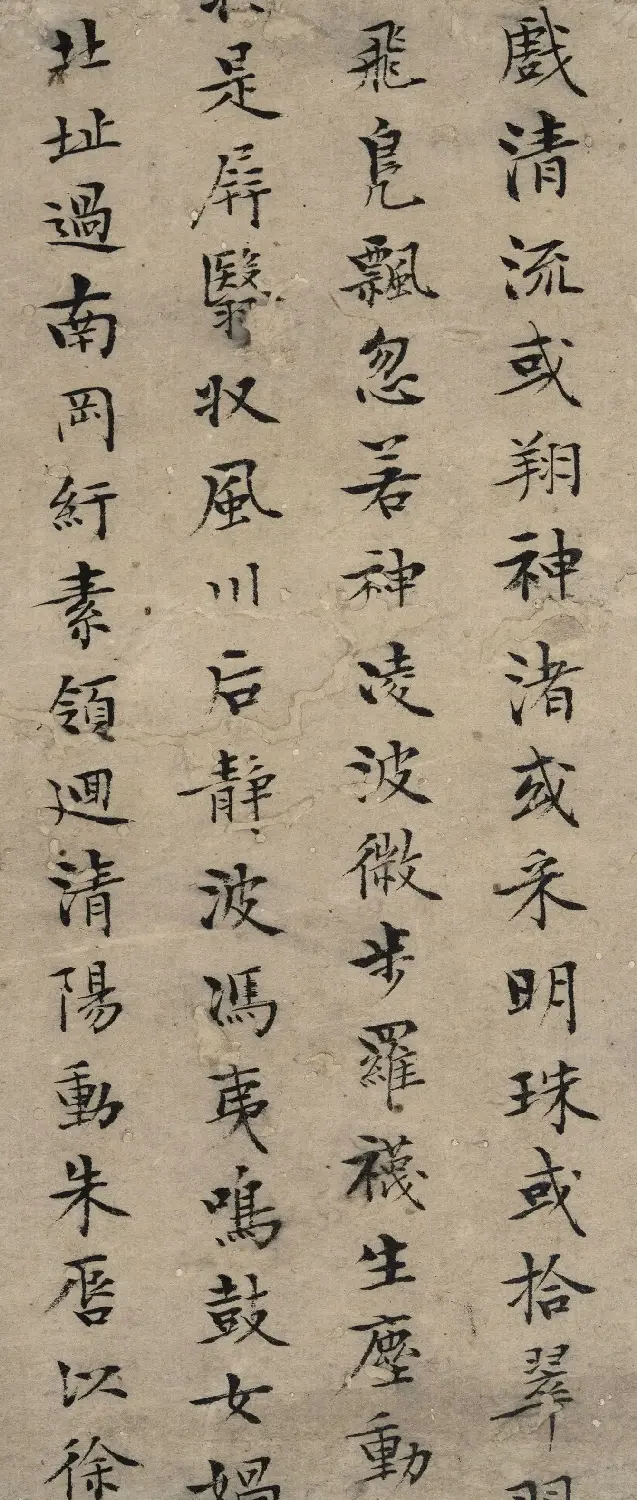 戲清流或翔神渚或采明珠或拾翠羽
飛鳧飄忽若神淩波微步羅襪生塵動
是屏翳収風川后靜波馮夷鳴鼓女媧
北沚過南岡紆素領迴清陽動朱脣以徐